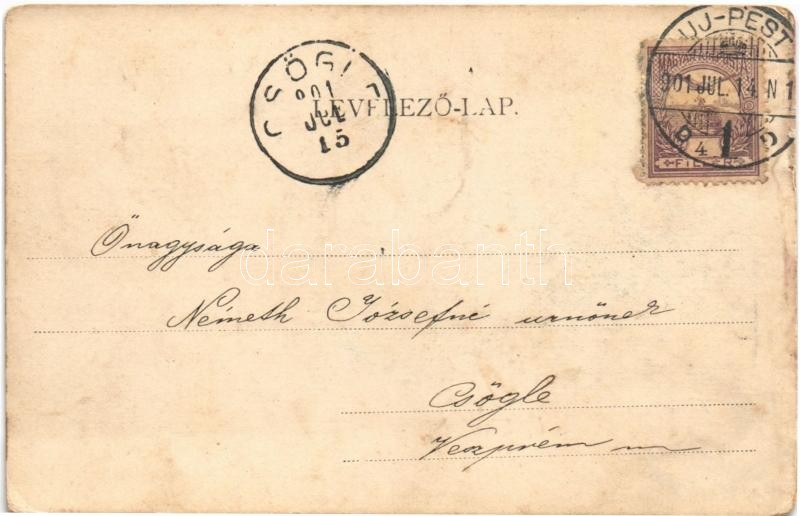 UJ-PEST
901 JUL. 14 N 1
4
FILLÉR
CSÖGLE
901
JUL
15
LEVELEZŐ-LAP.
Őnagysága
Németh Józsefné urnőnek
Csögle
Veszprém m
darabanth